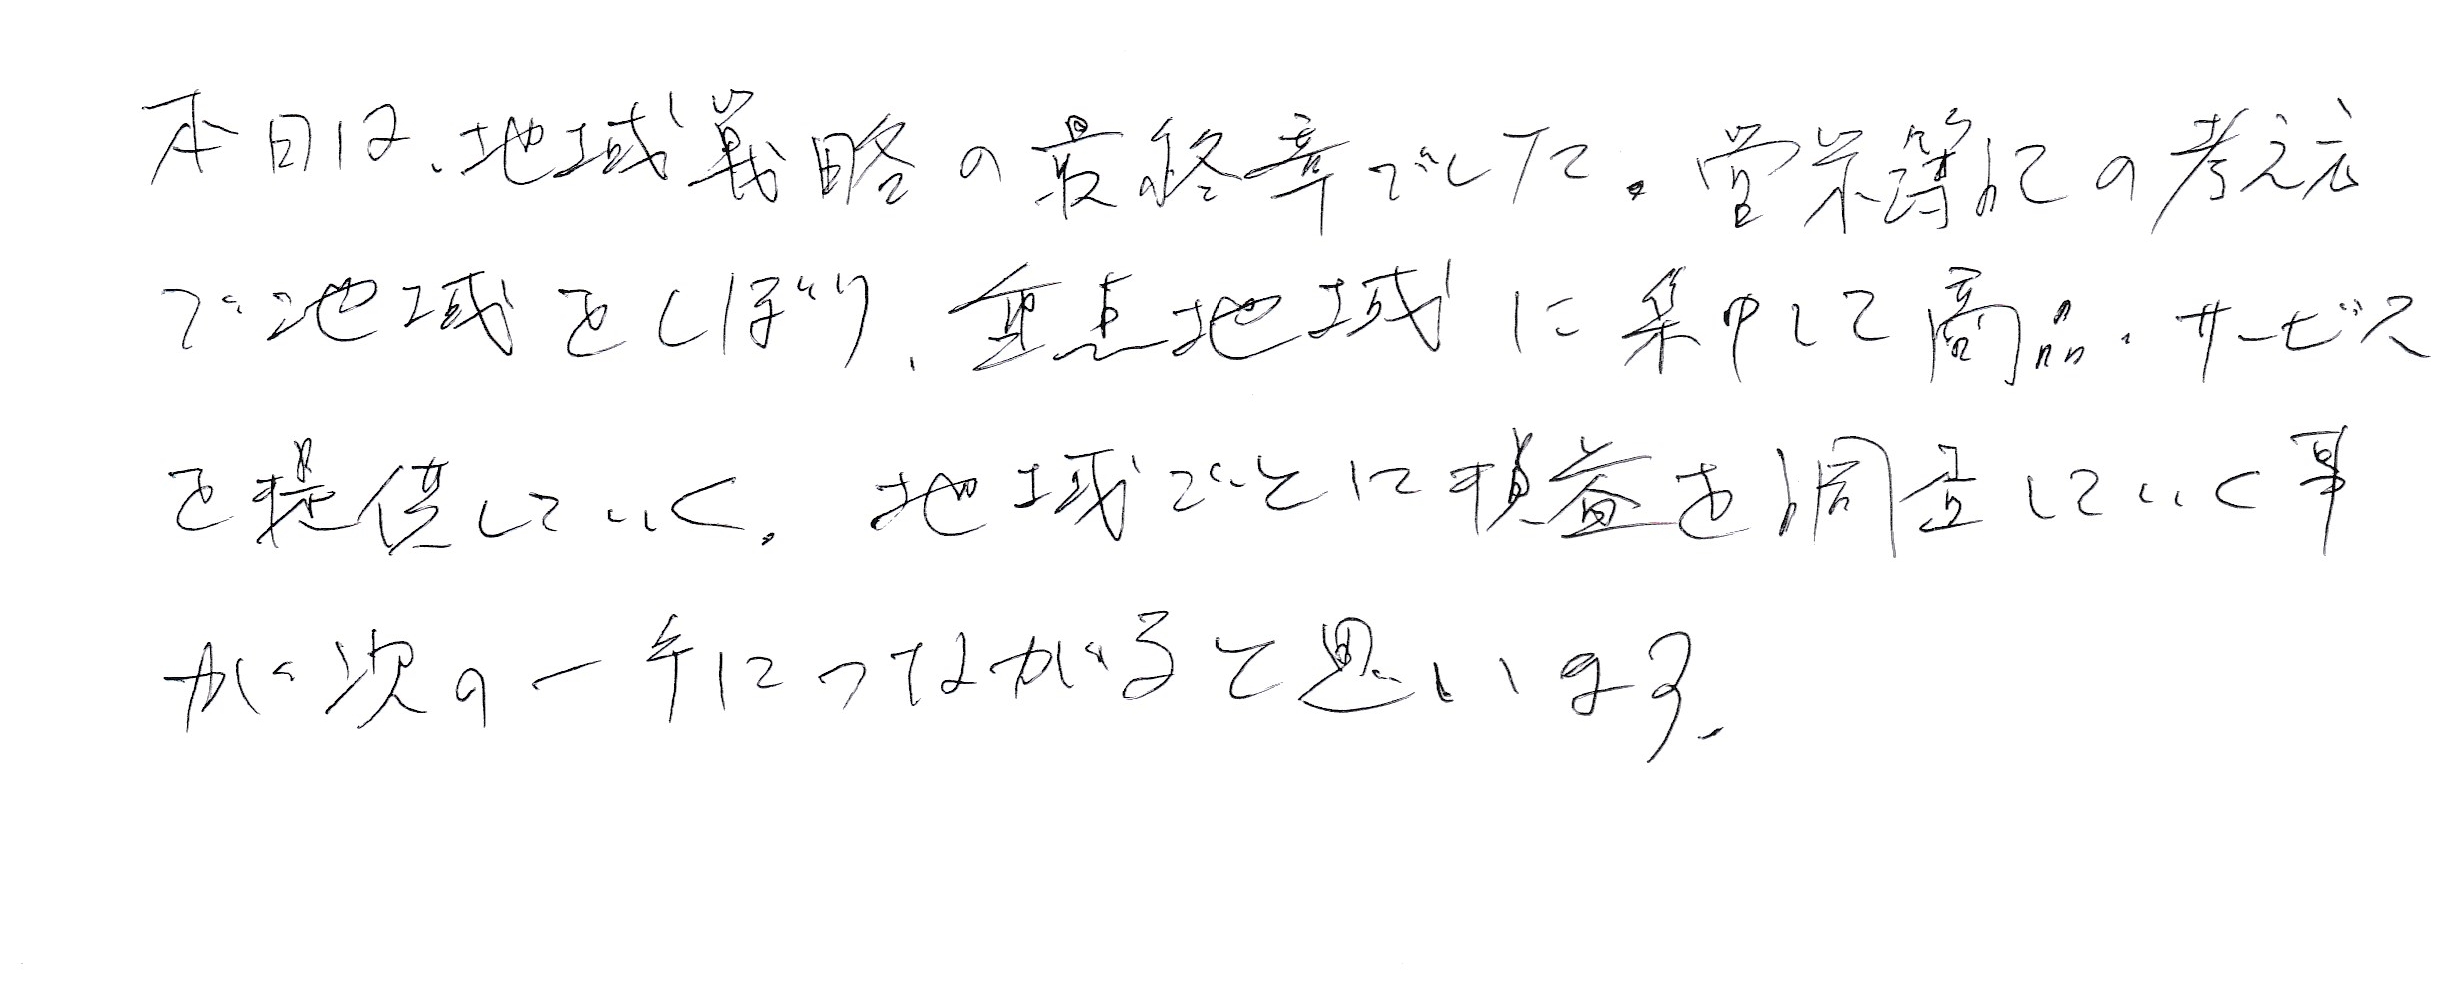 本日は、地域戦略の最終章でした。営業簿記の考え方
で地域をしぼり、重点地域に集中して商品・サービス
を提供していく。地域ごとに損益を調査していく事
が次の一手につながると思います。